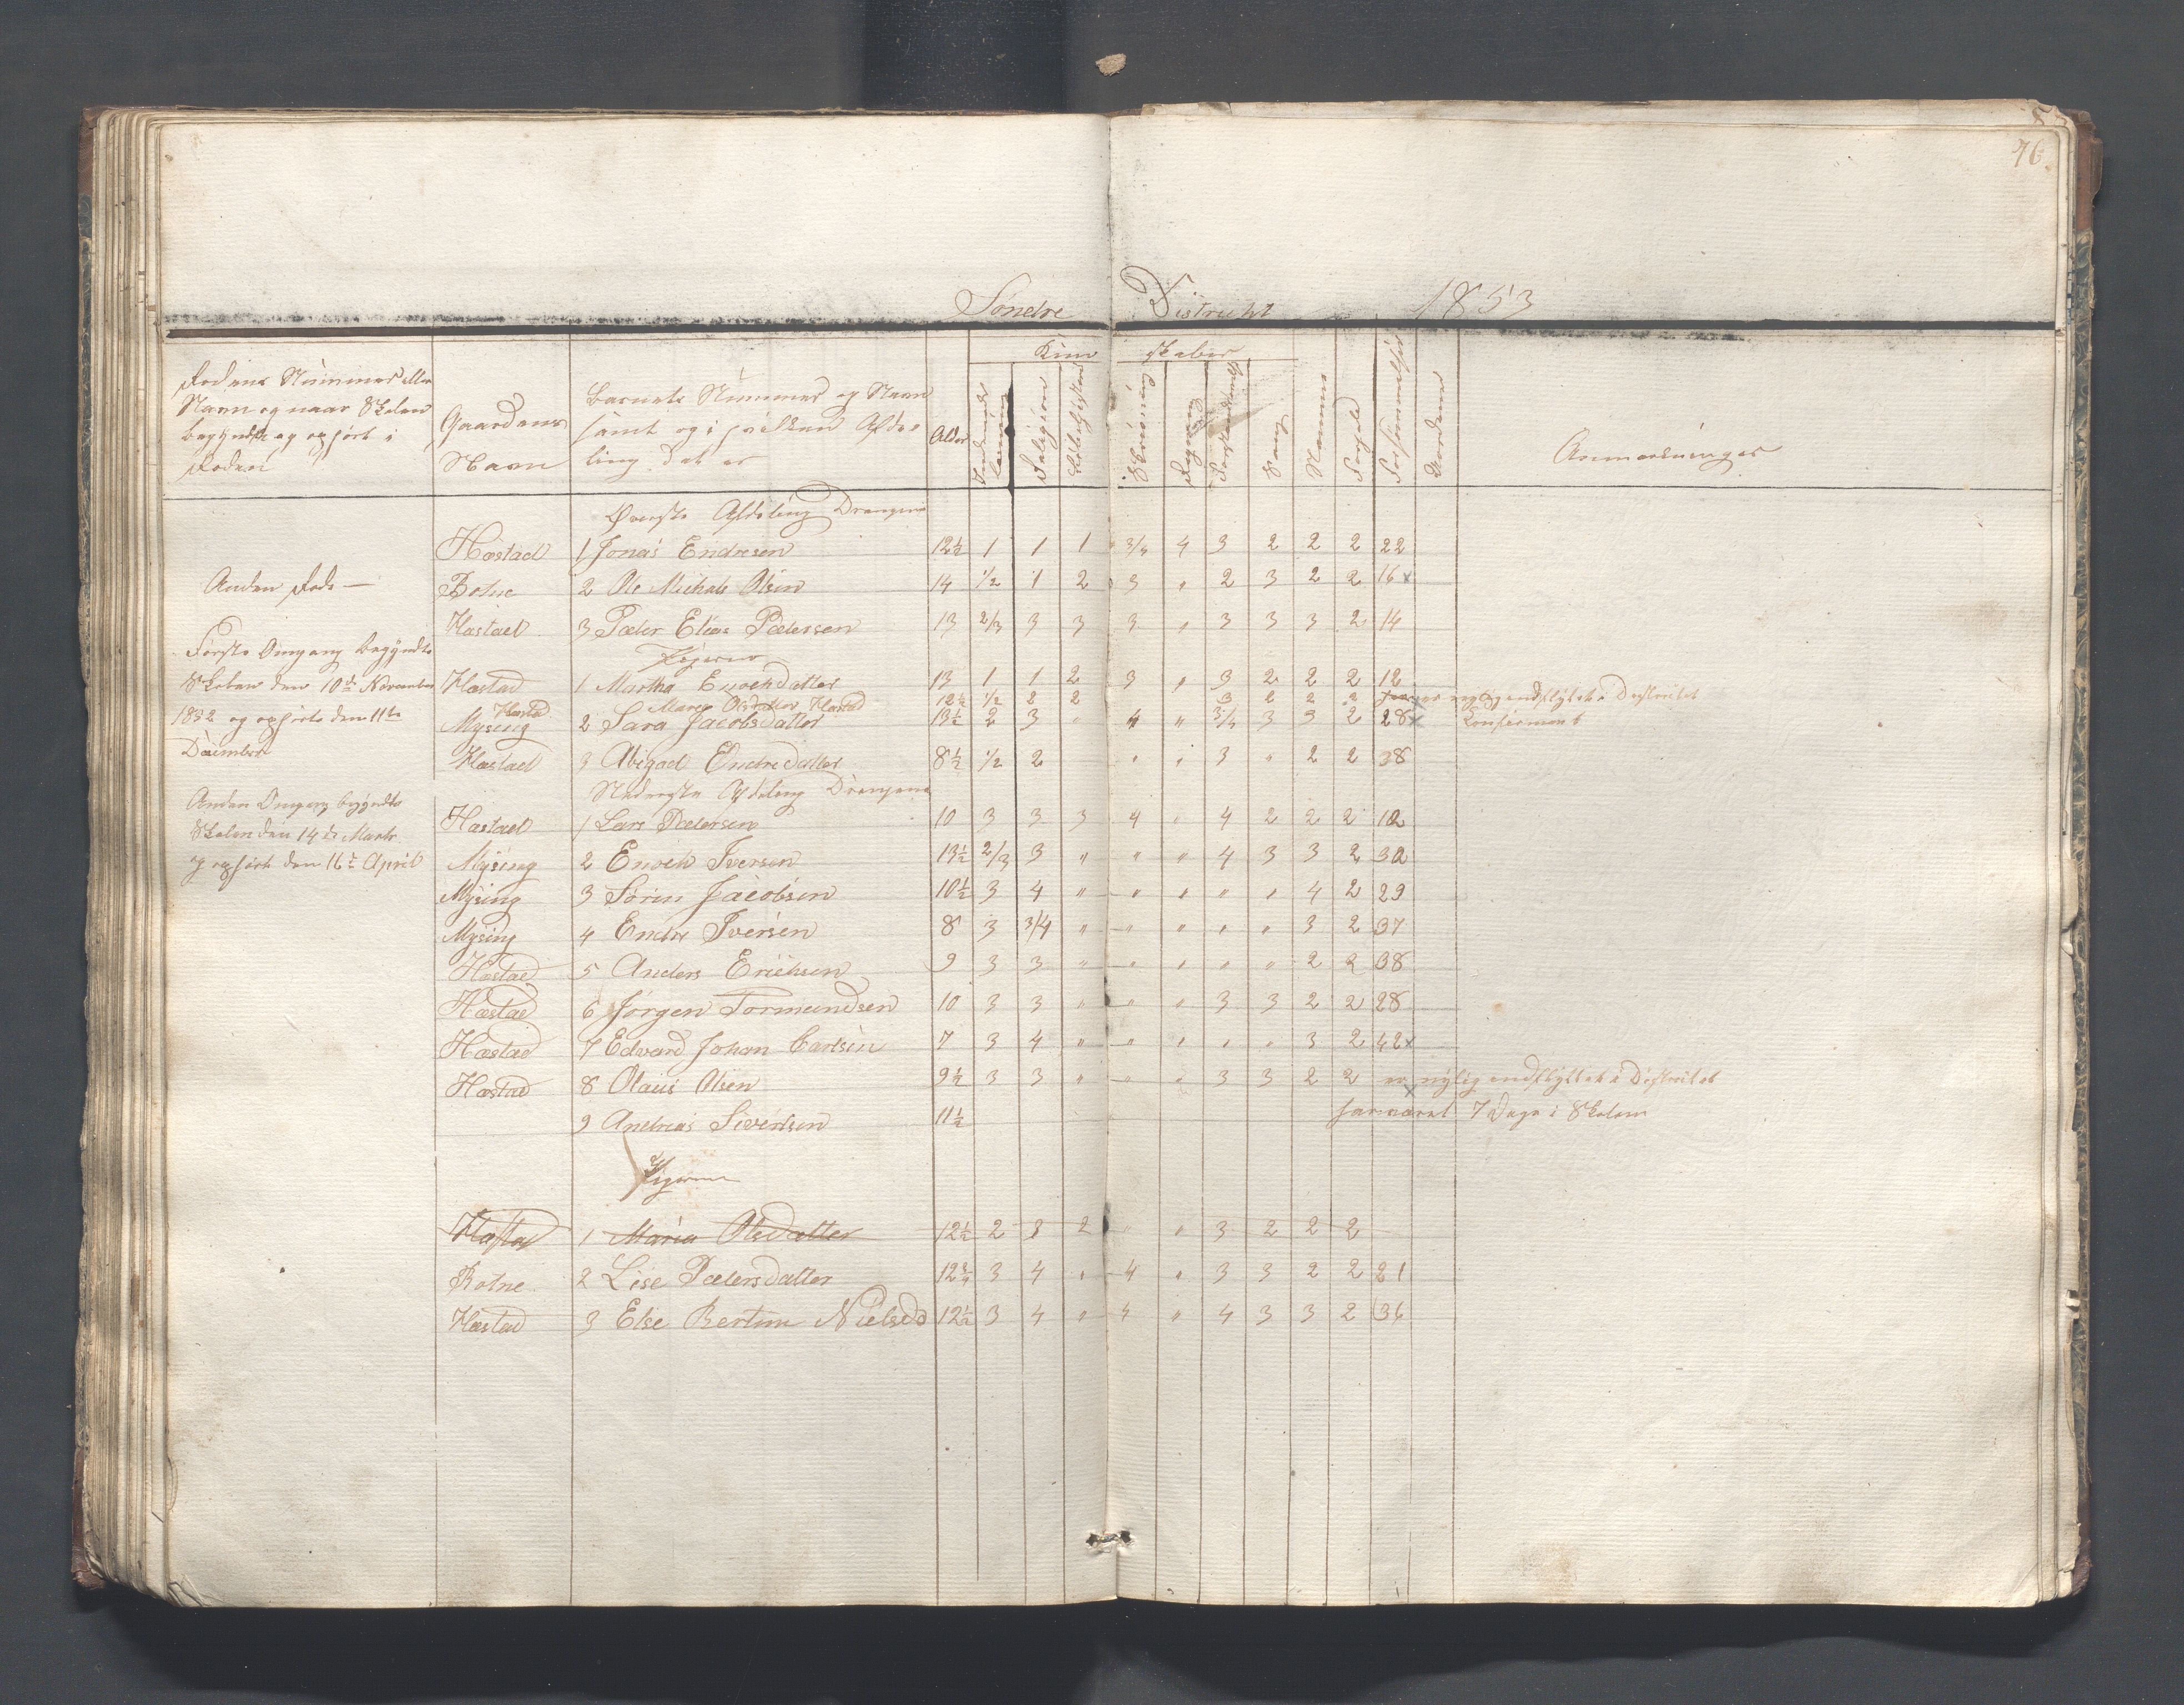 76
Söndre Districkt 1853
Rodens Nummer eller
Navn og naar Skolen
begyndte og ophørt i
Roden
Gaardens
Navn
Barnets Nummer og Navn
samt og i hvilken Afde-
ling det er
Alder
Kund skaber
Religion
Skrivning
Regning
Sang
Nemme
Forsømmelser
Anmærkninger
Øverste Afdeling Drengene
Hæstad 1 Jonas Endresen 12½ 1 1 1 3/4 4 3 2 2 2 22
Anden Rode —
Botne 2 Ole Michale Olsen 14 1/2 1 2 3 " 2 3 2 2 16 x
Hæstad 3 Peder Elias Pedersen 13 2/3 3 3 3 " 3 3 3 2 14
Første Omgang begyndte
Skolen den 10de November
1852 og ophørte den 11te
December
Pigerne
Hæstad 1 Martha Enochdatter 13 1 1 2 3 " 3 2 2 2 12
Maren Olsdatter Hæstad 12½ 1/2 2 2 3 2 2 2 er nylig indflyttet i Distriktet
Mysing 2 Sara Jacobsdatter 13½ 2 3 " 4 " 3/4 3 3 2 28 x Confirmeret
Hæstad 3 Abigael Endredatter 8½ 1/2 2 " " 3 " 2 2 38
Anden Omgang begyndte
Skolen den 14de Marts
og ophørte den 16de April
Nederste Afdeling Drengene
Hæstad 1 Lars Pedersen 10 3 3 3 4 " 4 2 2 2 12
Mysing 2 Enoch Iversen 13½ 2/3 3 " " " 4 3 3 2 32
Mysing 3 Sören Jacobsen 10½ 3 4 " " " " " 4 2 29
Mysing 4 Endre Iversen 8 3 3/4 " " " " " 3 2 37
Hæstad 5 Anders Erichsen 9 3 3 " " " " " 2 2 38
Hæstad 6 Jörgen Tormundsen 10 3 3 " " " 3 3 2 2 28
Hæstad 7 Edvard Johan Carlsen 7 3 4 " " " " " 3 2 42 x
Hæstad 8 Olaus Olsen 9½ 3 3 " " " 3 3 2 2 er nylig indflyttet i Distriktet
9 Andreas Sivertsen 11½ har været 7 Dage i Skolen
Pigerne
Hæstad 1 Maria Olsdatter 12½ 2 3 2 " " 3 2 2 2
Botne 2 Lise Pedersdatter 12¾ 3 4 " 4 " 3 3 2 2 21
Hæstad 3 Else Bertine Nielsd 12½ 3 4 " 4 " 4 3 3 2 36